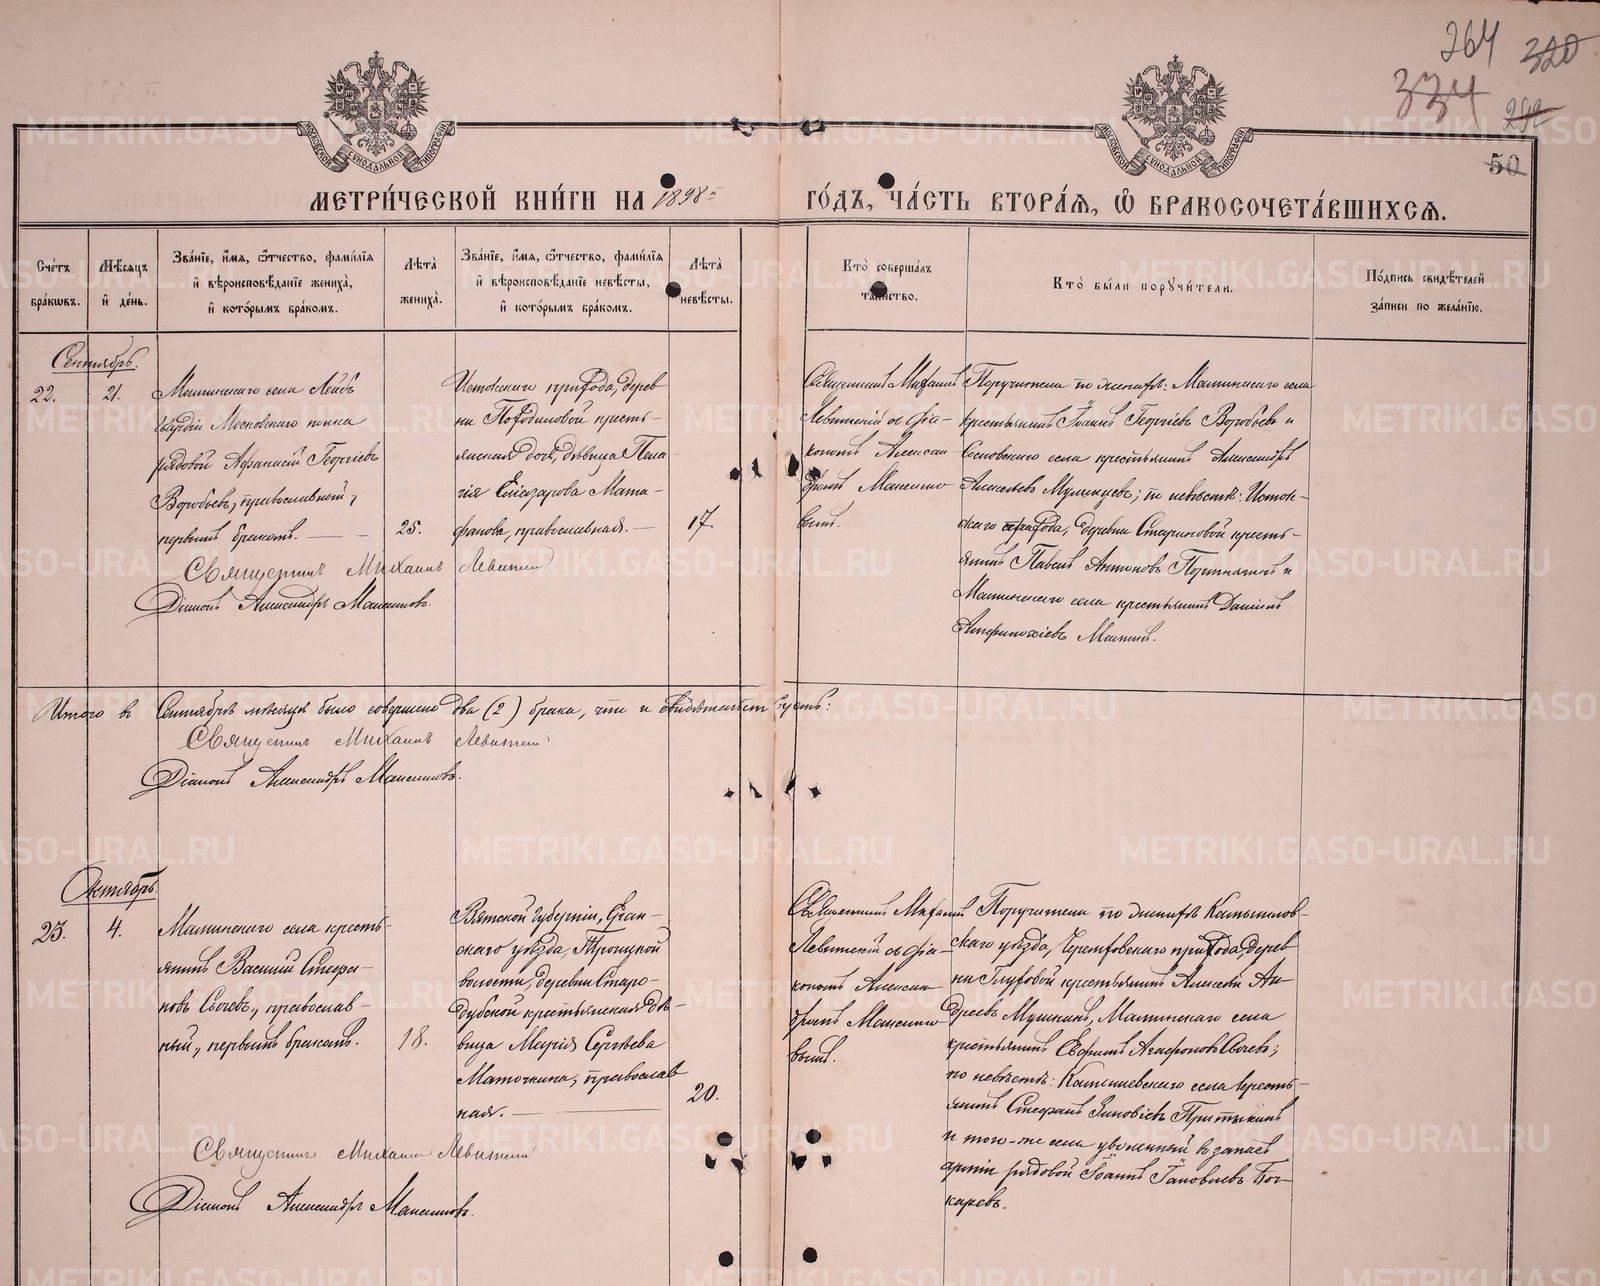 264 320
334 292
50
МОСКОВСКОЙ СѴНОДАЛЬНОЙ ТИПОГРАФІИ
МОСКОВСКОЙ СѴНОДАЛЬНОЙ ТИПОГРАФІИ
МЕТРИ́ЧЕСКОЙ КНИ́ГИ НА 1898й ГО́ДЪ, ЧА́СТЬ ВТОРА́Я, Ѽ БРАКОСОЧЕТА́ВШИХСЯ.
Счётъ
бра́кѡвъ.
Мѣсяцъ
и҆ де́нь.
Зва́нїе, и҆́мя, ѻ҆́тчество, фами́лїя
и҆ вѣроисповѣ́данїе жениха̀,
и҆ кото́рымъ бра́комъ.
Лѣ́та
жениха̀.
Зва́нїе, и҆́мя, ѻ҆́тчество, фами́лїя
и҆ вѣроисповѣ́данїе невѣ́сты,
и҆ кото́рымъ бра́комъ.
Лѣ́та
невѣ́сты.
Кто̀ соверша́лъ
та́инство.
Кто̀ бы́ли порꙋчи́тели.
По́дпись свидѣ́телей
за́писи по жела́нїю.
Сентябрь.
22.
21.
Маминскаго села Лейбъ
гвардіи Московскаго полка
рядовой Афанасій Георгіевъ
Воробьевъ, православный,
первымъ бракомъ.
25.
Истокскаго прихода, дерев
ни Походиловой кресть-
янская дочь, дѣвица Пела-
гія Елеазарова Мата-
фанова, православная.
17.
Священникъ Михаилъ
Левитскій съ діа-
кономъ Алексан
дромъ Максимо-
вымъ.
Поручители по женихѣ: Маминскаго села
крестьянинъ Іоаннъ Георгіевъ Воробьевъ и
Сосновскаго села крестьянинъ Александръ
Алексѣевъ Мулинцевъ; по невѣстѣ: Исток-
скаго прихода, деревни Стариковой кресть-
янинъ Павелъ Антоновъ Портнягинъ и
Маминскаго села крестьянинъ Даніилъ
Амфилохіевъ Маминъ.
Священникъ Михаилъ Левитскій
Діаконъ Александръ Максимовъ.
Итого въ Сентябрѣ мѣсяцѣ было совершено два (2) брака, что и свидѣтельствуемъ:
Священникъ Михаилъ Левитскій
Діаконъ Александръ Максимовъ.
Октябрь.
23.
4.
Маминскаго села кресть-
янинъ Василій Стефа-
новъ Сычевъ, православ-
ный, первымъ бракомъ.
18.
Вятской губерніи, Орлов-
скаго уѣзда, Троицкой
волости, деревни Старо-
дубской крестьянская дѣ-
вица Марія Сергѣева
Маточкина, православ
ная.
20.
Священникъ Михаилъ
Левитскій съ діа-
кономъ Алексан
дромъ Максимо-
вымъ.
Поручители по женихѣ Камышлов-
скаго уѣзда, Черемховскаго прихода, дерев
ни Глуховой крестьянинъ Алексѣй Ан
дреевъ Мушкинъ, Маминскаго села
крестьянинъ Ефремъ Агафоновъ Сычевъ;
по невѣстѣ: Камышевскаго села кресть-
янинъ Стефанъ Зиновіевъ Притыкинъ
и того-же села уволенный въ запасъ
арміи рядовой Іоаннъ Іаковлевъ Боч-
каревъ.
Священникъ Михаилъ Левитскій
Діаконъ Александръ Максимовъ.
METRIKI.GASO-URAL.RU